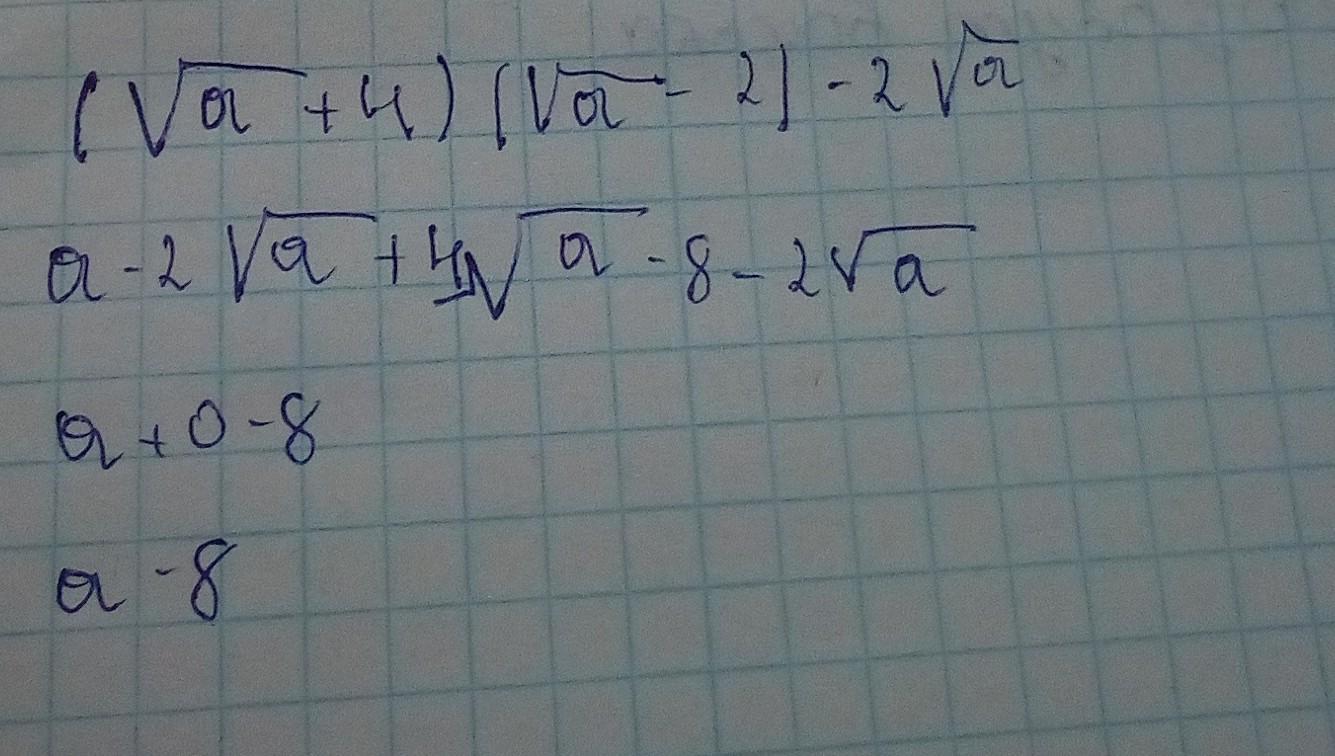 (√a + 4) (√a - 2) - 2 √a
a - 2 √a + 4√a - 8 - 2 √a
a + 0 - 8
a - 8